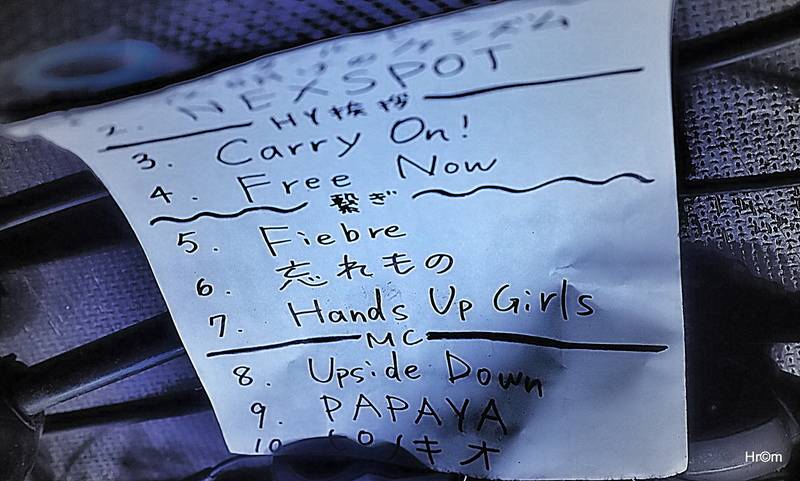 2. NEXSPOT
HY挨拶
3. Carry On!
4. Free Now
繋ぎ
5. Fiebre
6. 忘れもの
7. Hands Up Girls
MC
8. Upside Down
9. PAPAYA
10 ピノキオ
Hr©m